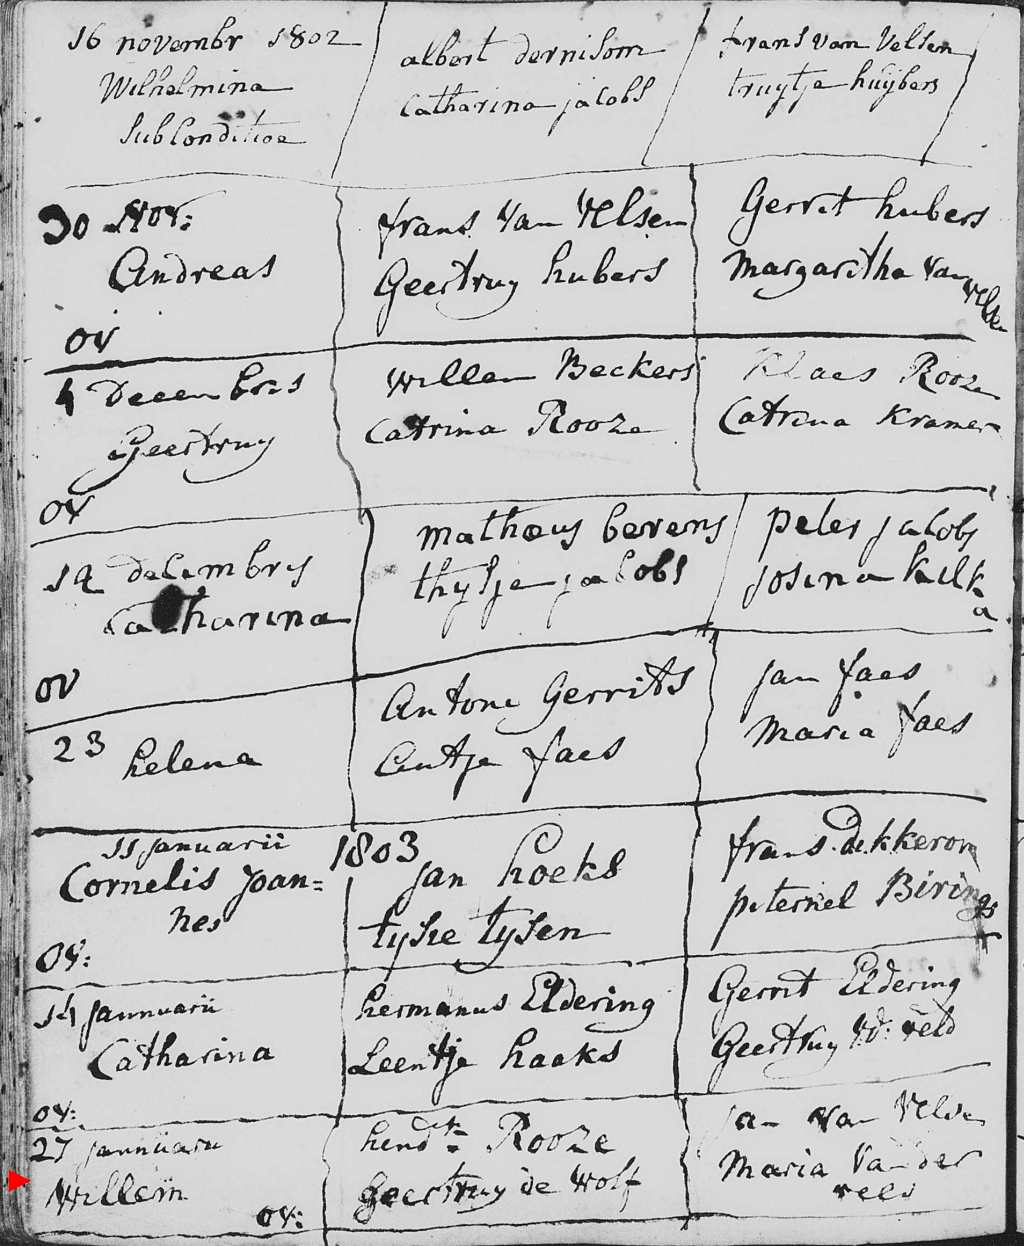 16 novembr 1802
Wilhelmina
Sub Conditione
albert dernisom
Catharina jacobs
frans van Velsen
truytje huijbers
30 Nov:
Andreas
ov
frans Van Velsen
Geertruy hubers
Gerret hubers
Margaritha Van
Velsen
4 Decembris
Geertruy
ov
Willem Beckers
Catrina Rooze
Klaes Rooze
Catrina Kramer
12 decembrys
Catharina
ov
matheus berens
thytje jacobs
peter jacobs
josina kulk
a
23
helena
Antony Gerrits
Antje faes
jan faes
Maria faes
1803
11 januarii
Cornelis Joan=
nes
ov:
jan hoeks
tysie tysen
frans dekkerom
peternel Birings
14 jannuarii
Catharina
ov:
hermanus Eldering
Leentje haaks
Gerrit Eldering
Geertruy Vd: veld
27 jannuarii
Willem
ov:
hendk Rooze
Geertruy de Wolf
jan Van Velsen
Maria Van der
rees